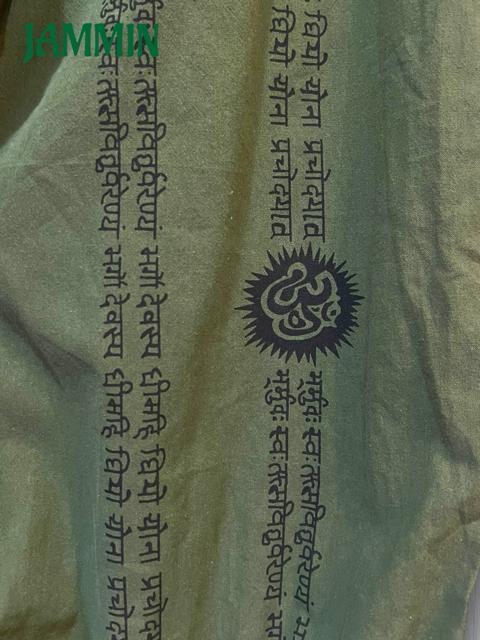 JAMMIN
धियो योना प्रचोदयात
ॐ
भूर्भुवः स्वःतत्सवितुर्वरेण्यं
धियो योना प्रचोदयात
भूर्भुवः स्वःतत्सवितुर्वरेण्यं
स्वःतत्सवितुर्वरेण्यं भर्गो देवस्य धीमहि धियो योना
तत्सवितुर्वरेण्यं भर्गो देवस्य धीमहि धियो योना